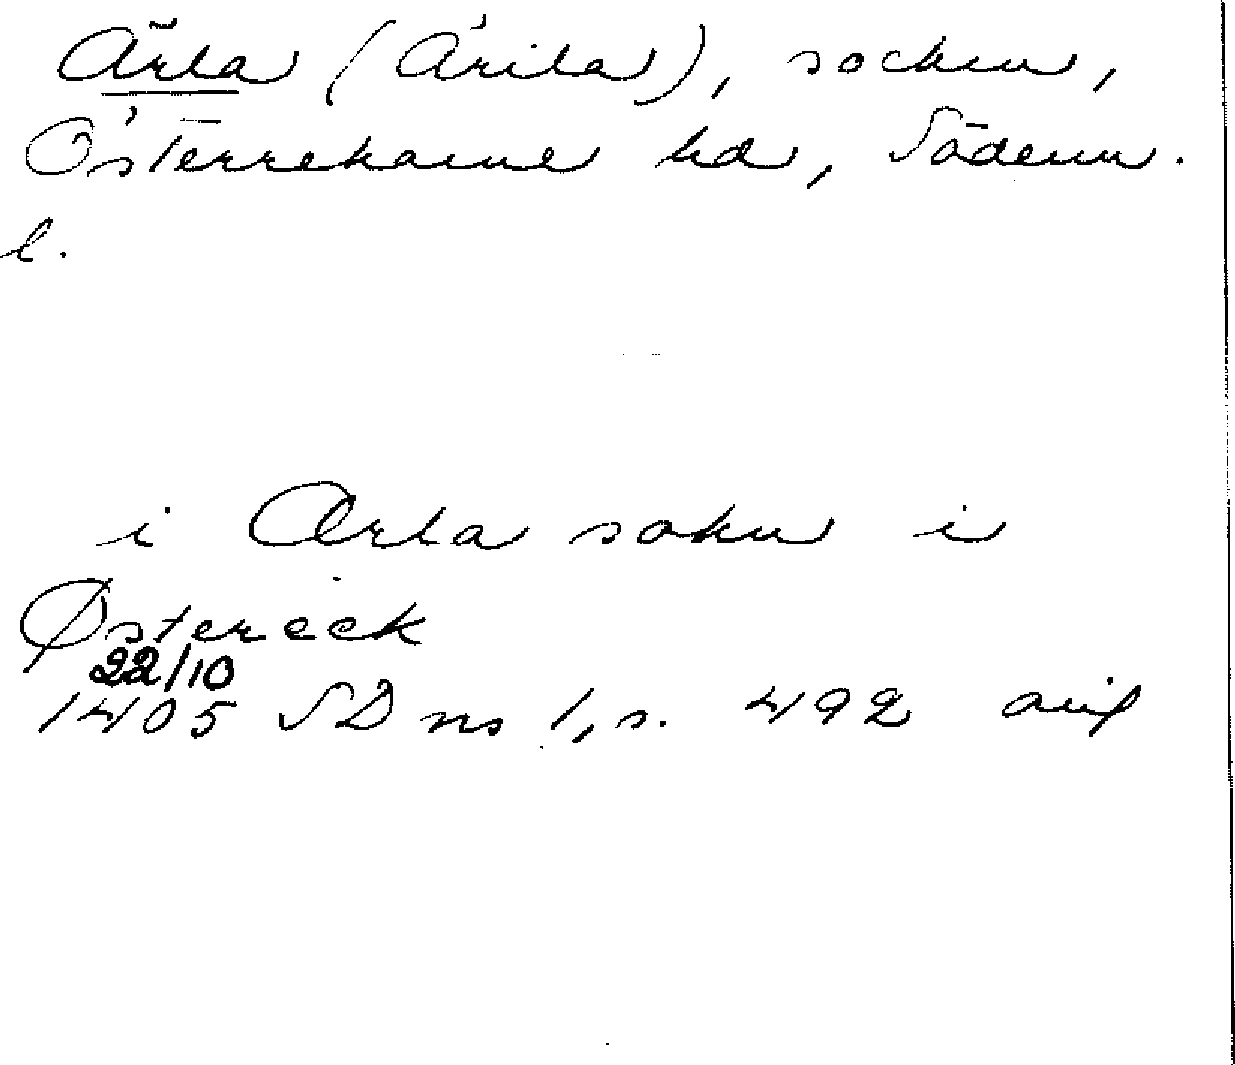 Ärla (Ärila), socken,
Österrekarne hd, Söderm.
l.
i Ærla sokn i
Østereek
22/10
1405 SD ns 1, s. 492 avs